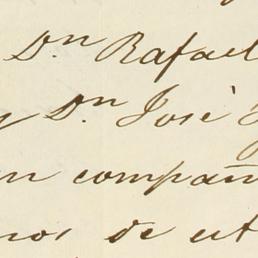 Dn Rafael
y Dn José
en compañ
nos de ut